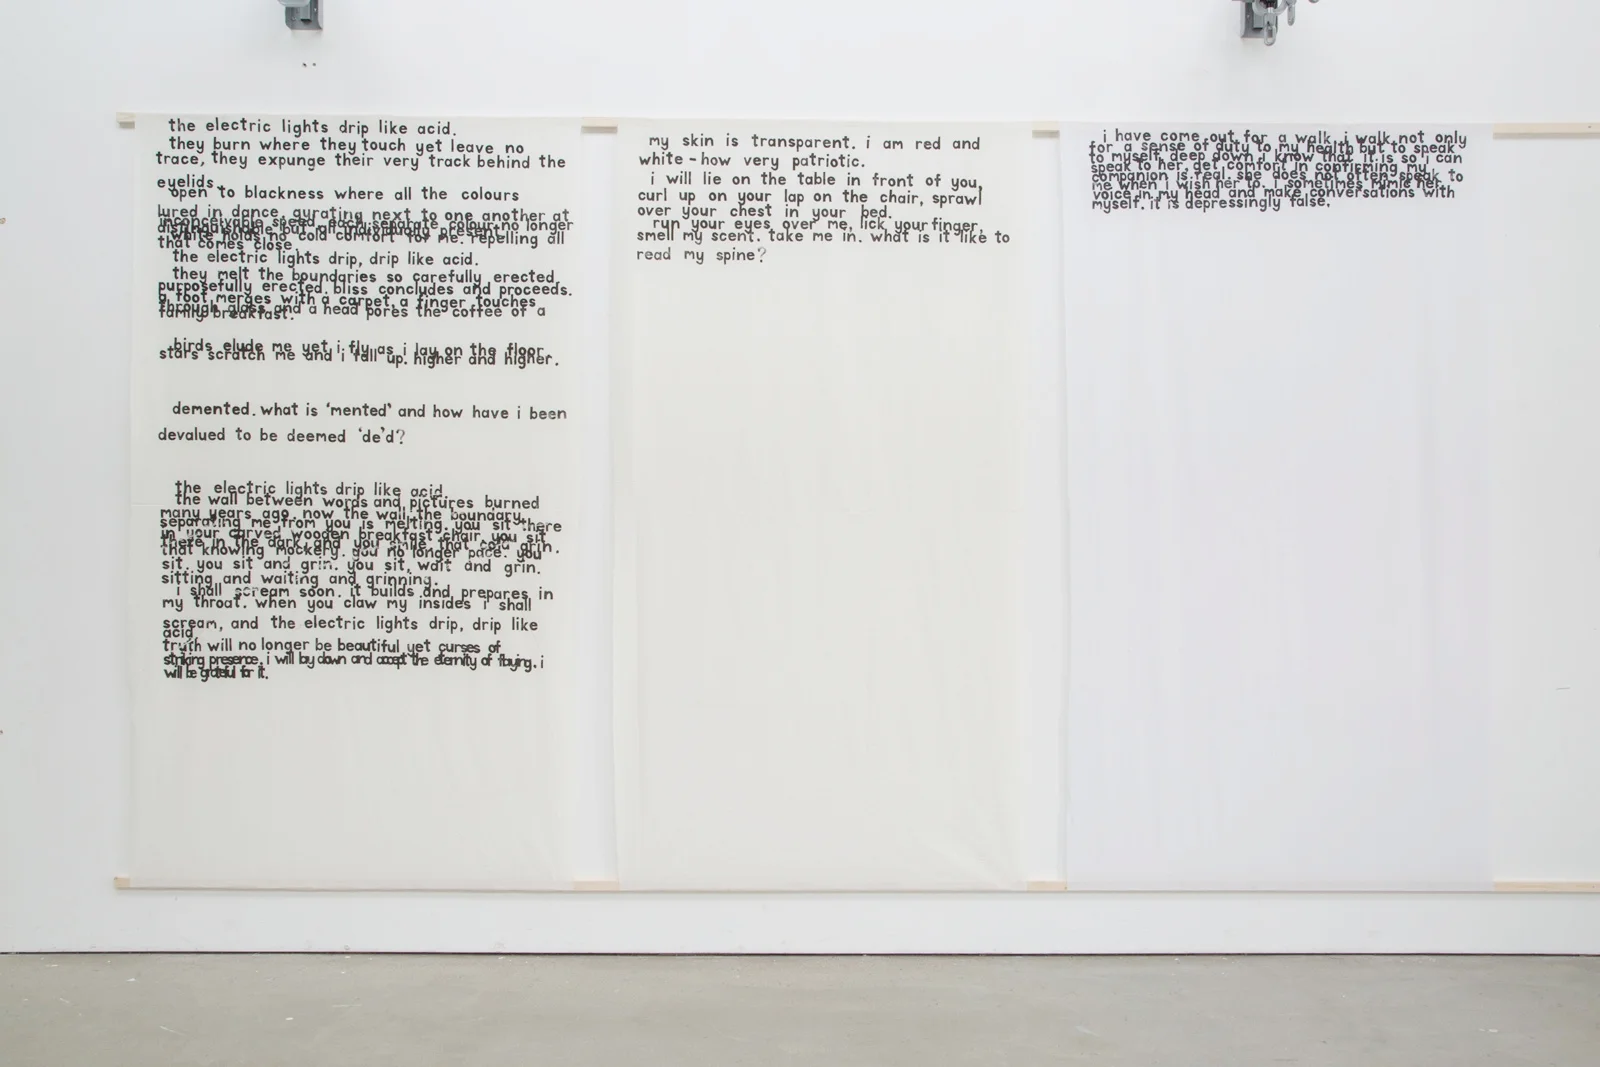 the electric lights drip like acid.
they burn where they touch yet leave no
trace, they expunge their very track behind the
eyelids.
open to blackness where all the colours
lured in dance, gyrating next to one another at
inconceivable speed, each separate colour no longer
distinguishable but all individually present.
white holds no cold comfort for me. repelling all
that comes close.
the electric lights drip, drip like acid.
they melt the boundaries so carefully erected,
purposefully erected. bliss concludes and proceeds.
a foot merges with a carpet, a finger touches
through glass and a head pores the coffee of a
family breakfast.
birds elude me yet i fly as i lay on the floor.
stars scratch me and i fall up. higher and higher.
demented. what is ‘mented’ and how have i been
devalued to be deemed ‘de’d?
the electric lights drip like acid.
the wall between words and pictures burned
many years ago. now the wall, the boundary
separating me from you is melting. you sit there
in your carved wooden breakfast chair. you sit
there in the dark, and you smile that cold grin.
that knowing mockery. you no longer pace. you
sit. you sit and grin. you sit, wait and grin.
sitting and waiting and grinning.
i shall scream soon. it builds and prepares in
my throat. when you claw my insides i shall
scream, and the electric lights drip, drip like
acid.
truth will no longer be beautiful yet curses of
striking presence. i will lay down and accept the eternity of flaying. i
will be grateful for it.
my skin is transparent. i am red and
white - how very patriotic.
i will lie on the table in front of you,
curl up on your lap on the chair, sprawl
over your chest in your bed.
run your eyes over me, lick your finger,
smell my scent. take me in. what is it like to
read my spine?
i have come out for a walk. i walk not only
for a sense of duty to my health but to speak
to myself. deep down i know that it is so i can
speak to her. get comfort in confirming my
companion is real. she does not often speak to
me when i wish her to. i sometimes mimic her
voice in my head and make conversations with
myself. it is depressingly false.